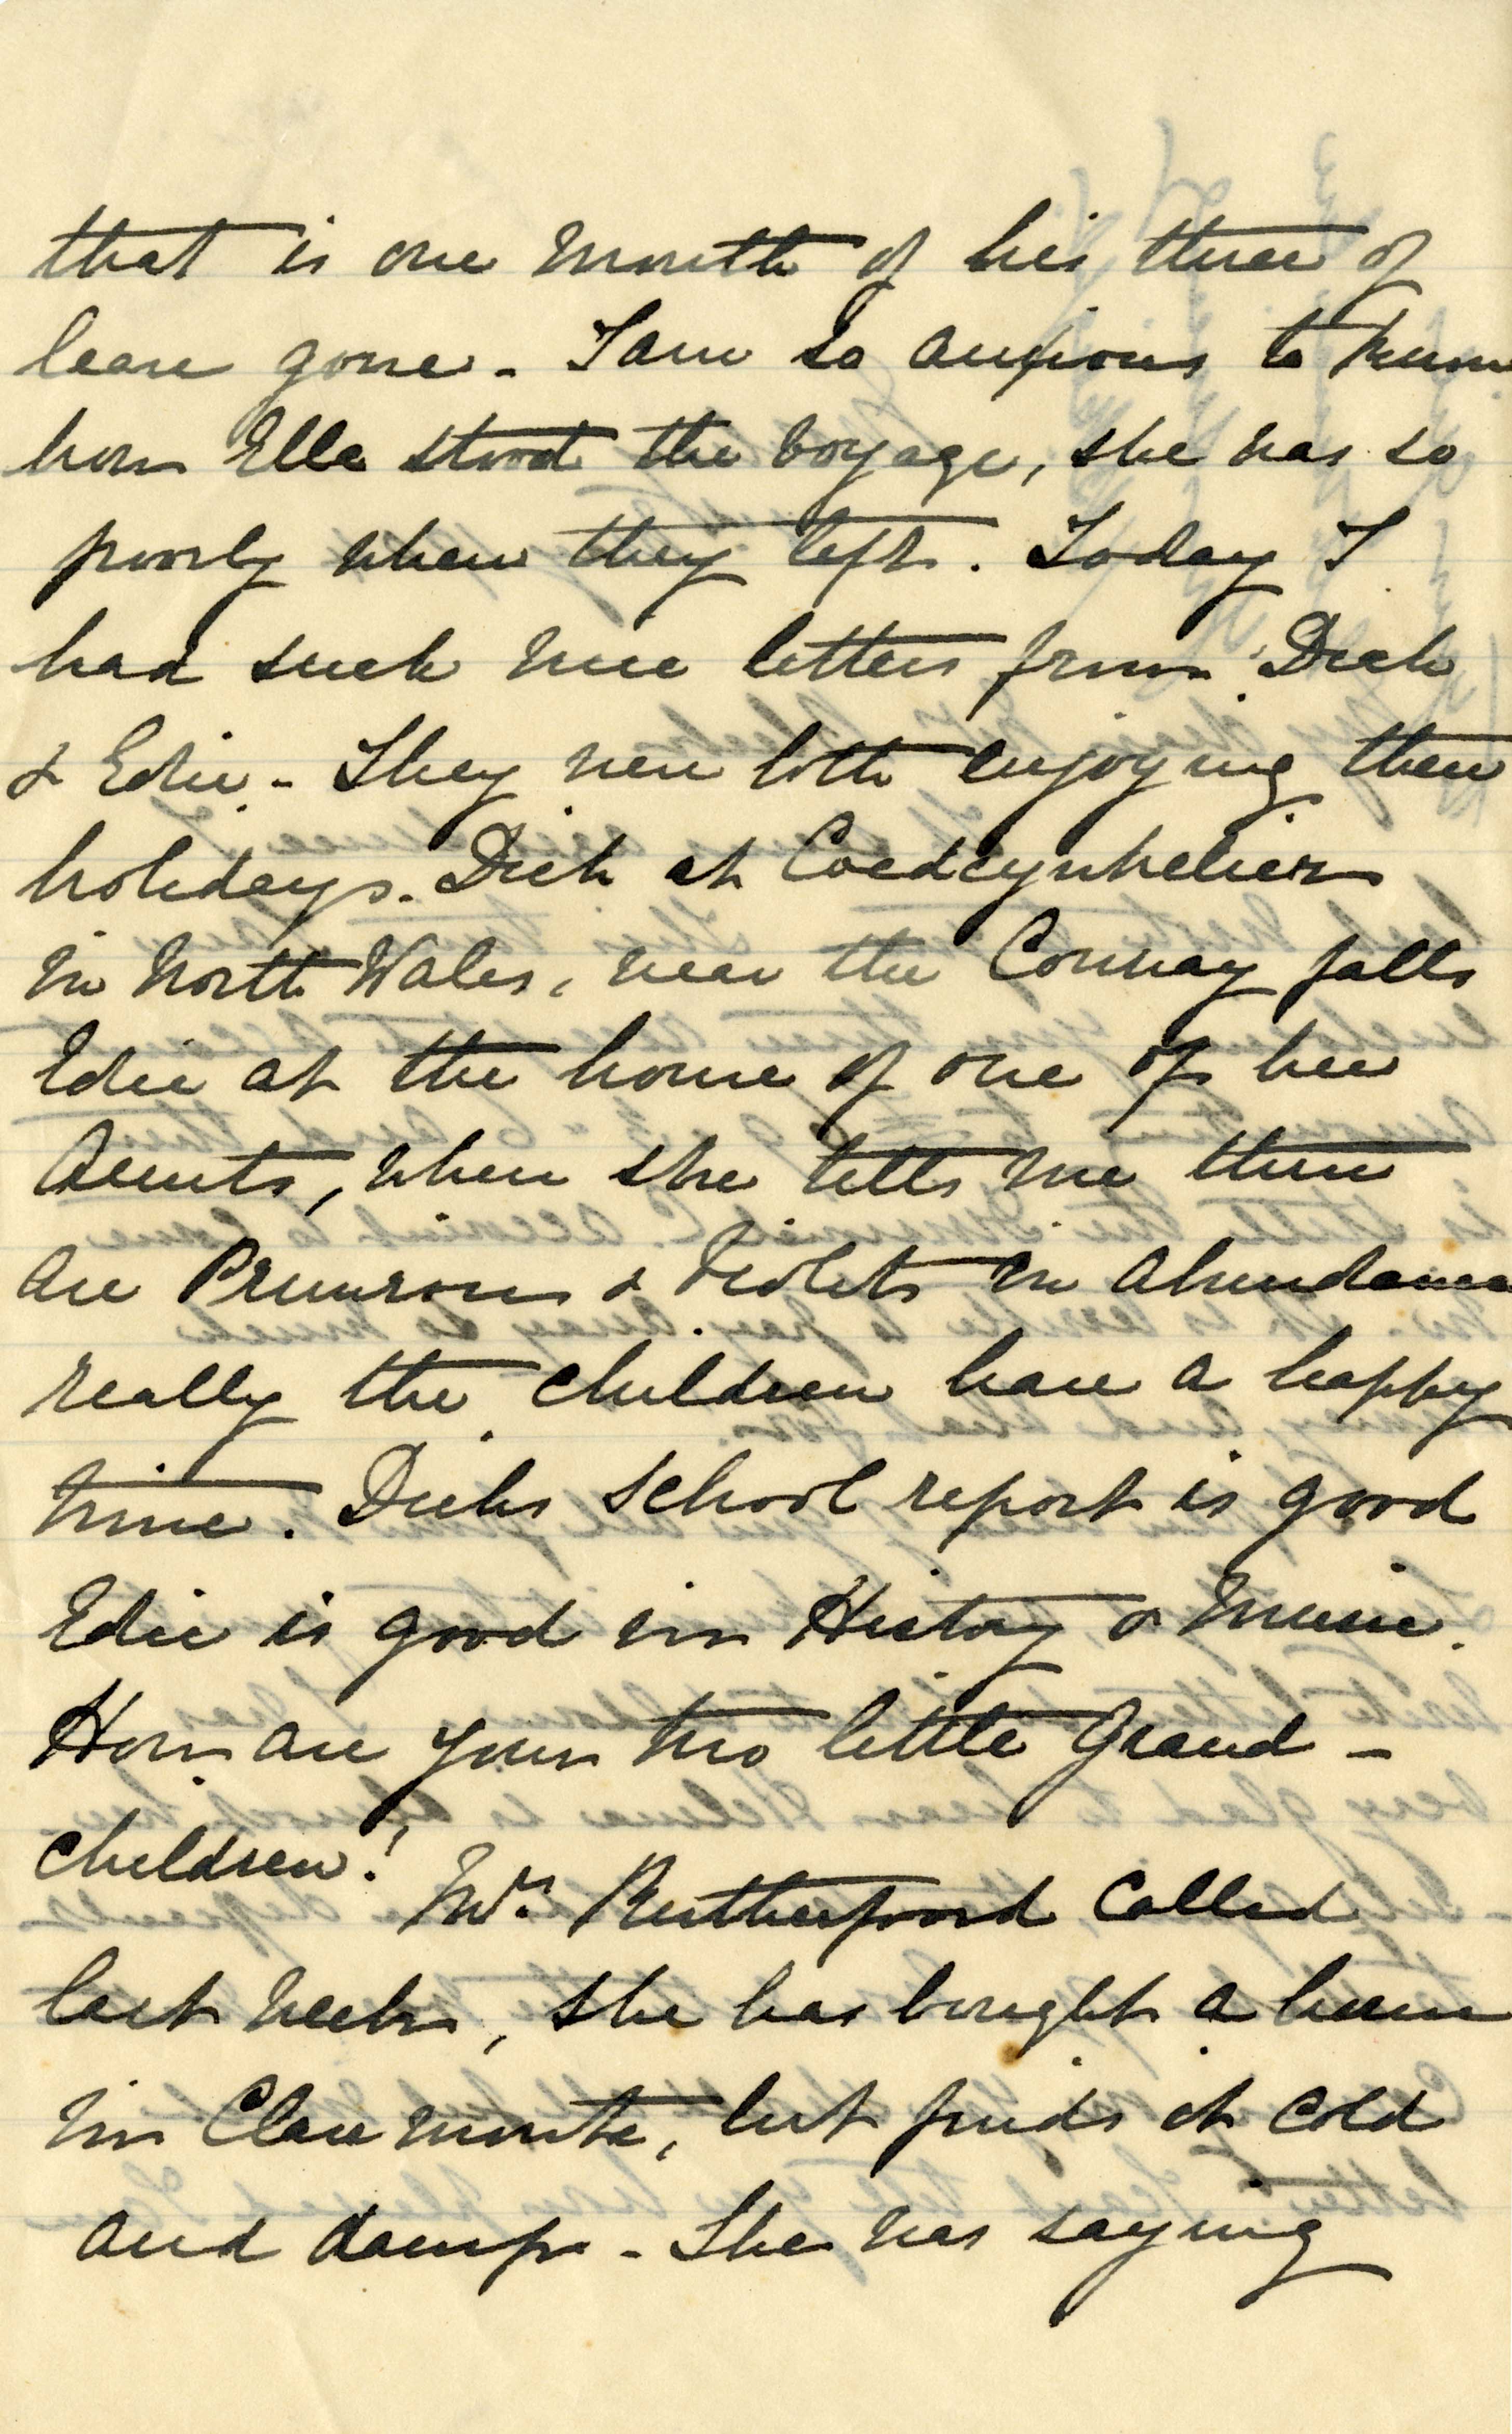 that is one month of his three of
leave gone - I am so anxious to know
how Ella stood the voyage, she was so
poorly when they left. Today I
had such nice letters from Dick
& Edie - They were both enjoying their
holidays. Dick at Coedcynhelier
in North Wales, near the Conway falls
Edie at the home of one of her
Aunts, where she tells me there
are Primroses & Violets in abundance
really the children have a happy
time. Dicks School report is good
Edie is good in History & Music.
How are your two little Grand -
children! Mrs Rutherfoord called
last week, she has bought a house
in Claremont, but finds it cold
and damp - She was saying